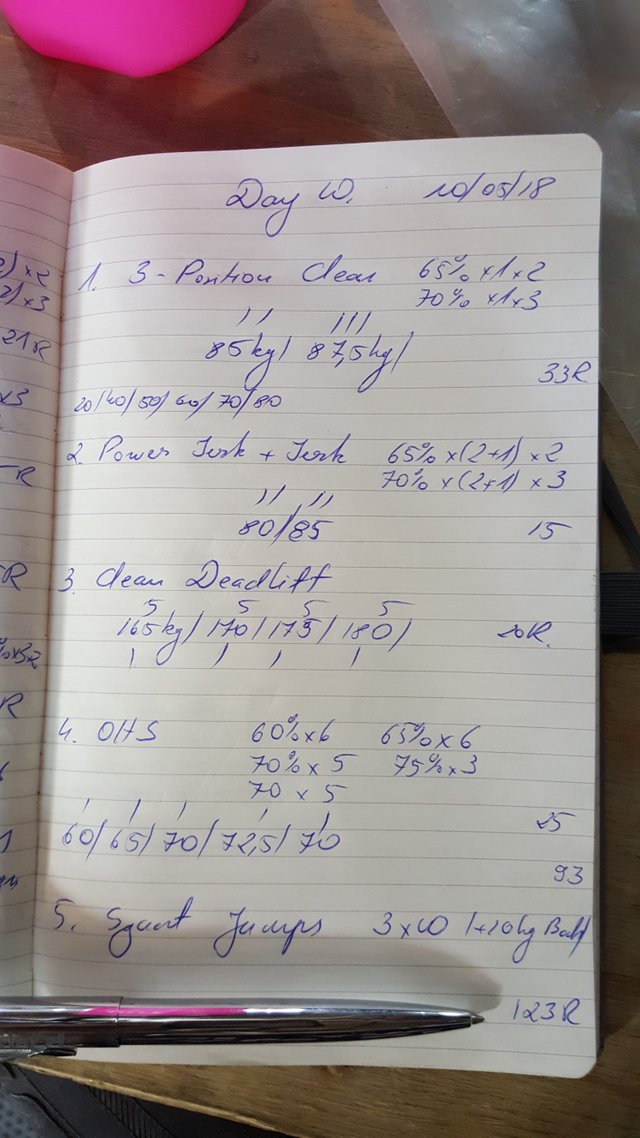 Day 10. 10/05/18
2) x2
2) x3
1. 3-Position Clean 65% x1x2
70% x1x3
21R
85kg/ 87,5kg/
33R
x3
20/40/50/60/70/80
2. Power Jerk + Jerk 65% x(2+1) x2
70% x(2+1) x3
80/85 15
R
3. Clean Deadlift
5 5 5 5
165kg/ 170/ 175/ 180/ 20R.
R
4. OHS 60%x6 65%x6
70%x 5 75%x3
70 x 5
60/ 65/ 70/ 72,5/ 70 25
93
5. Squat Jumps 3x10 /+20kg Ball
123R